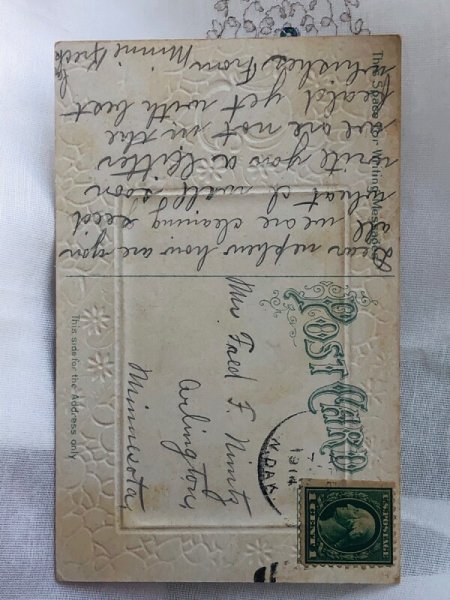 POST CARD
This Space for Writing Messages
This side for the Address only
Dear nephew how are you
all we are cleaning seed
wheat I will soon
write you a leitter
we are not in the
feald yet with best
whishes From Minnie
Fred F.
Arlington,
Minnesota,
N.DAK.
1914
U.S.POSTAGE
1 CENT 1